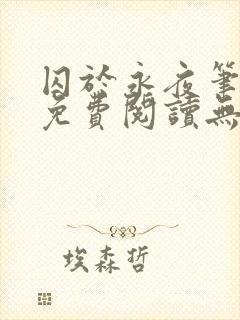 囚於永夜筆
免費閱讀無
埃森哲